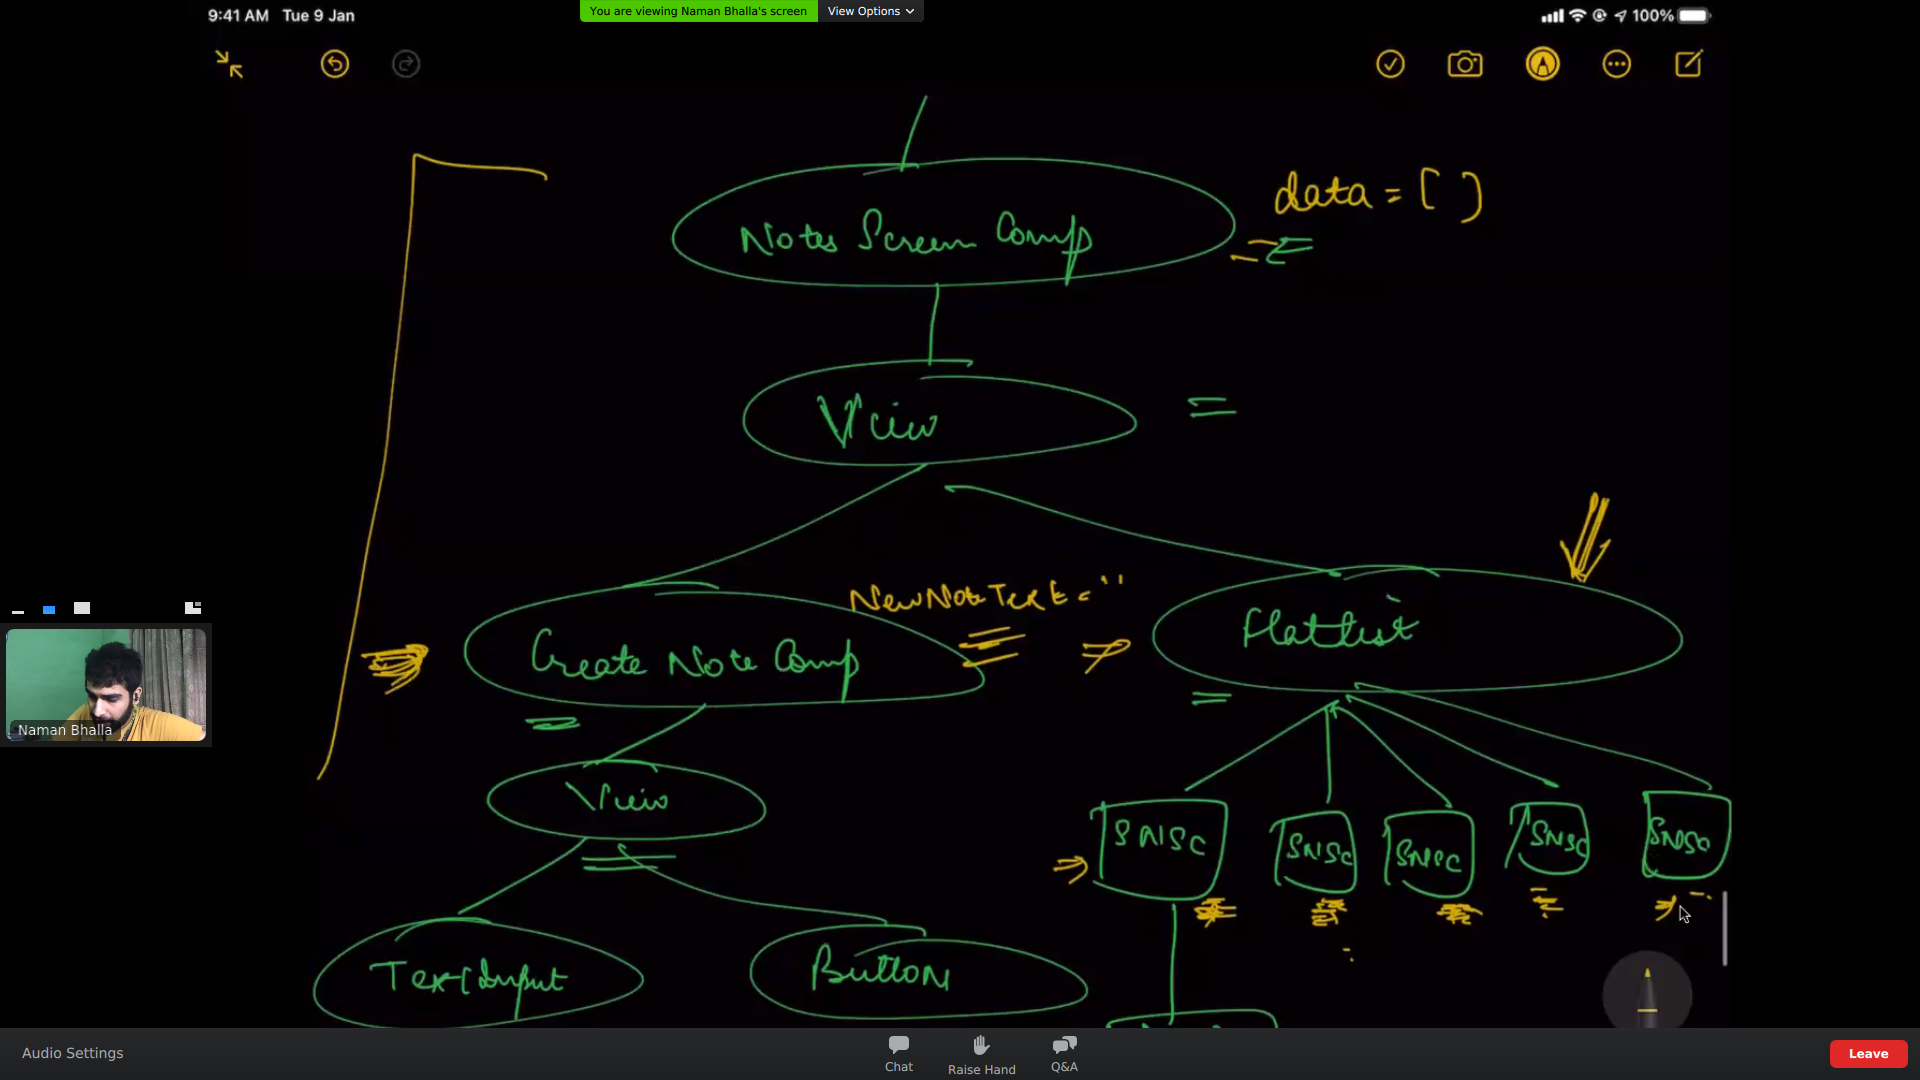 9:41 AM Tue 9 Jan
You are viewing Naman Bhalla's screen View Options
100%
Notes Screen Comp
data = [ ]
View
NewNoteText = ''
Create Note Comp
Flatlist
View
SNISC
SNISC
SNISC
SNISC
SNISC
TextInput
Button
Naman Bhalla
Audio Settings
Chat
Raise Hand
Q&A
Leave